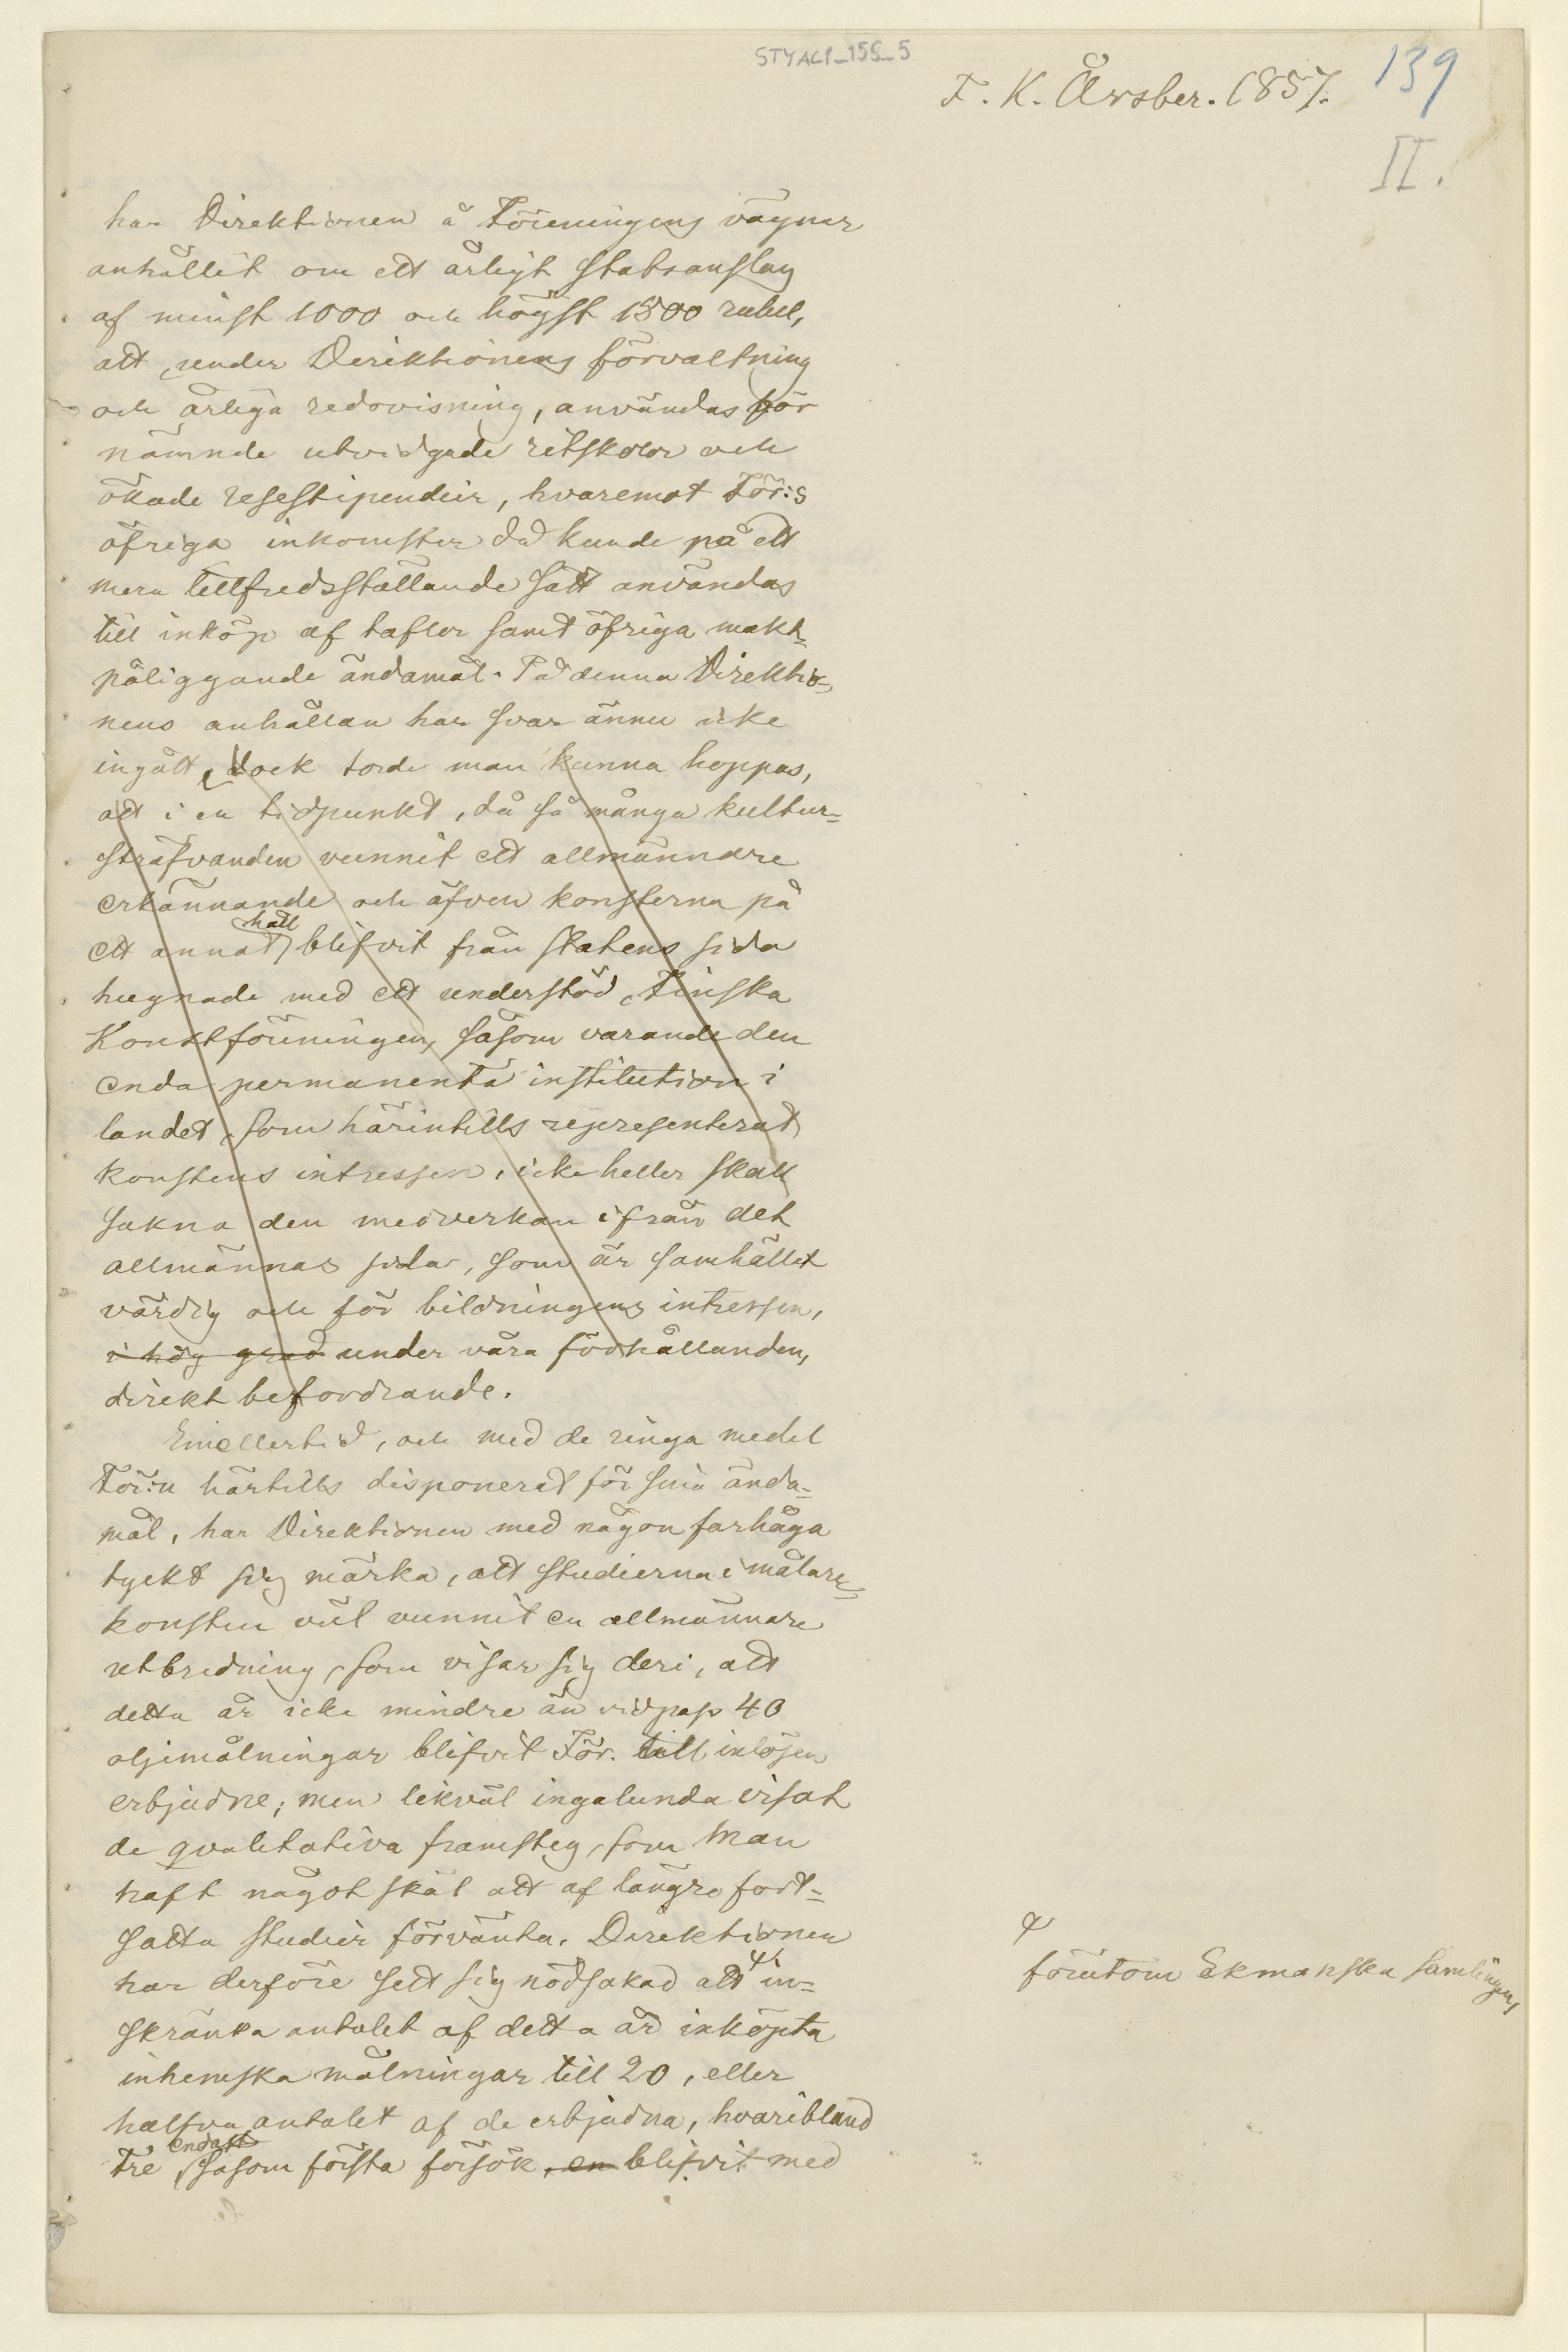 STYAC1_155_5
F. K. Årsber. 1857.
139
II.
har Direktionen å Föreningens vägnar
anhållit om ett årligt statsanslag
af minst 1000 och högst 1500 rubel,
att, under Direktionens förvaltning
och årliga redovisning, användas för
nämnde utvidgade ritskolor och
ökade resestipendier, hvaremot För:s
öfriga inkomster då kunde på ett
mera tillfredsställande sätt användas
till inköp af taflor samt öfriga makt-
påliggande ändamål. På denna Direktio-
nens anhållan har svar ännu icke
ingått, dock torde man kunna hoppas,
att i en tidpunkt, då så många kultur-
sträfvanden vunnit ett allmännare
erkännande och äfven konsterna på
ett annat håll blifvit från statens sida
hugnade med ett understöd, Finska
Konstföreningen, såsom varande den
enda permanenta institution i
landet, som härintills representerat
konstens intressen, icke heller skall
sakna den medverkan ifrån det
allmännas sida, som är samhället
värdig och för bildningens intressen,
i hög grad under våra förhållanden,
direkt befordrande.
Emellertid, och med de ringa medel
För:n härtills disponerat för sina ända-
mål, har Direktionen med någon farhåga
tyckt sig märka, att studierna i målare-
konsten väl vunnit en allmännare
utbredning, som visar sig deri, att
detta år icke mindre än vidpass 40
oljemålningar blifvit För. till inlösen
erbjudne; men likväl ingalunda visat
de qvalitativa framsteg, som man
haft något skäl att af längre fort-
satta studier förvänta. Direktionen
har derföre sett sig nödsakad att in-
skränka antalet af detta år inköpta
inhemska målningar till 20, eller
halfva antalet af de erbjudna, hvaribland
tre endast såsom första försök, en blifvit med
förutom Ekmanska samlingen,